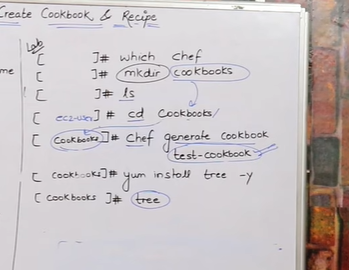 Create Cookbook & Recipe
Lab
[ ]# which chef
me [ ]# mkdir cookbooks
[ ]# ls
[ ec2-user ]# cd Cookbooks/
[ Cookbooks ]# Chef generate cookbook
test-cookbook
[ cookbooks ]# yum install tree -y
[ cookbooks ]# tree